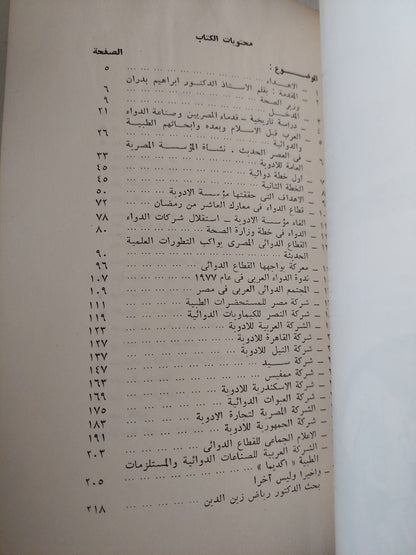 محتويات الكتاب
الموضوع : الصفحة
١ ـ الاهداء ... ... ... ٥
٢ ـ المقدمة : بقلم الاستاذ الدكتور ابراهيم بدران
وزير الصحة ... ... ... ٦
المدخل ... ... ... ٩
ـ دراسة تاريخية ـ قدماء المصريين وصناعة الدواء ٢١
العرب قبل الاسلام وبعده وابحاثهم الطبية
والدوائية ... ... ... ٢٦
ـ فى العصر الحديث . نشأة المؤسسة المصرية
العامة للادوية ... ... ... ٣٣
ـ أول خطة دوائية ... ... ... ٤٥
ـ الخطة الثانية ... ... ... ٤٥
ـ الاهداف التى حققتها مؤسسة الادوية ... ٥٠
ـ قطاع الدواء فى معارك العاشر من رمضان ... ٧٢
ـ الغاء مؤسسة الادوية ـ استقلال شركات الدواء ٧٨
ـ الدواء فى خطة وزارة الصحة ... ... ٨٠
ـ القطاع الدوائى المصرى يواكب التطورات العلمية
الحديثة ... ... ... ٩٠
ـ معركة يواجهها القطاع الدوائى ... ... ٩٦
ـ ندوة الدواء العربى فى عام ١٩٧٧ ... ١٠٧
ـ المجتمع الدوائى العربى فى مصر ... ١٠٩
ـ شركة مصر للمستحضرات الطبية ... ١١١
ـ شركة النصر للكيماويات الدوائية ... ١٢٣
ـ الشركة العربية للادوية ... ... ١٢٧
ـ شركة القاهرة للادوية ... ... ١٣٣
ـ شركة النيل للادوية ... ... ١٣٧
ـ شركة ســيد ... ... ... ١٤٧
ـ شركة ممفيس ... ... ... ١٦٣
ـ شركة الاسكندرية للادوية ... ... ١٦٩
ـ شركة العبوات الدوائية ... ... ١٧٥
ـ الشركة المصرية لتجارة الادوية ... ١٨٣
ـ شركة الجمهورية للادوية ... ... ١٩١
ـ الاعلام الجماعى للقطاع الدوائى ... ٢٠٣
ـ الشركة العربية للصناعات الدوائية والمستلزمات
الطبية « أكديما » ... ... ٢٠٥
ـ واخيرا وليس آخرا
بحث الدكتور رياض زين الدين ... ٢١٨